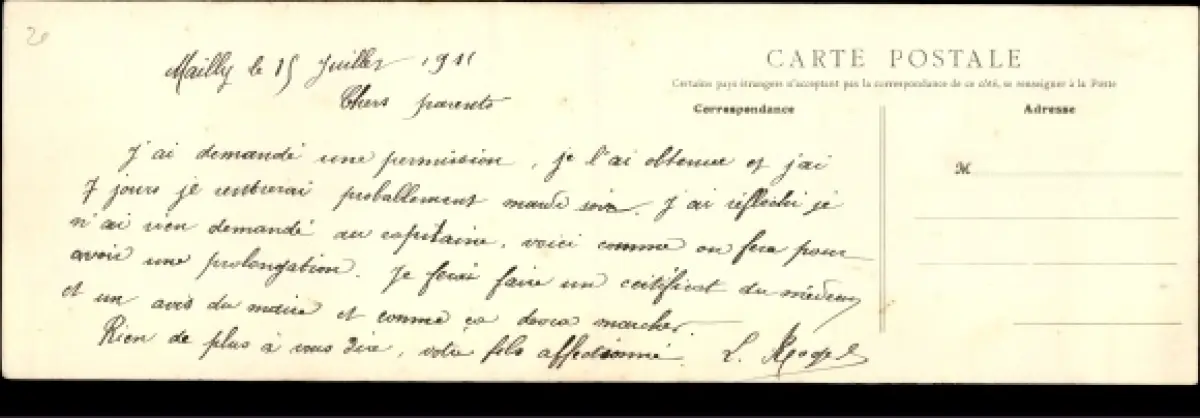 20
Mailly le 15 Juillet 1911
Chers parents
J'ai demandé une permission, je l'ai obtenue et j'ai
7 jours je rentrerai proballement mardi soir. J'ai réfléchi je
n'ai rien demandé au capitaine, voici comme on fera pour
avoir une prolongation. Je ferai faire un certificat du médecin
et un avis du maire et comme ça devra marcher.
Rien de plus à vous dire, votre fils affectionné. L.
CARTE POSTALE
Certains pays étrangers n'acceptant pas la correspondance de ce côté, se renseigner à la Poste
Correspondance
Adresse
M